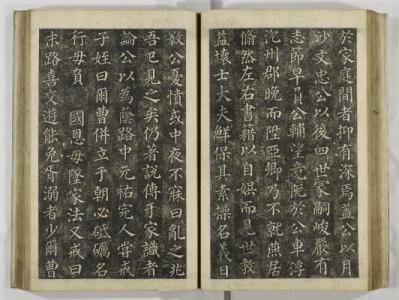 於家庭間者抑有深焉益公以月
沙文忠公以後四世家嗣峻嚴有
志節早負公輔望竟阨於公車浮
沉州郡晩而陞亞卿乃不就燕居
翛然左右書籍以自娛而見世敎
益壞士大夫鮮保其素操名義日
斁公憂憤或中夜不寐曰亂之兆
吾已見之矣仍著說傳于家識者
論公以為陰路中元祐完人嘗戒
子姪曰爾曹併立于朝必砥礪名
行毋負 國恩毋墜家法又戒曰
末路喜交遊能免胥溺者少爾曹